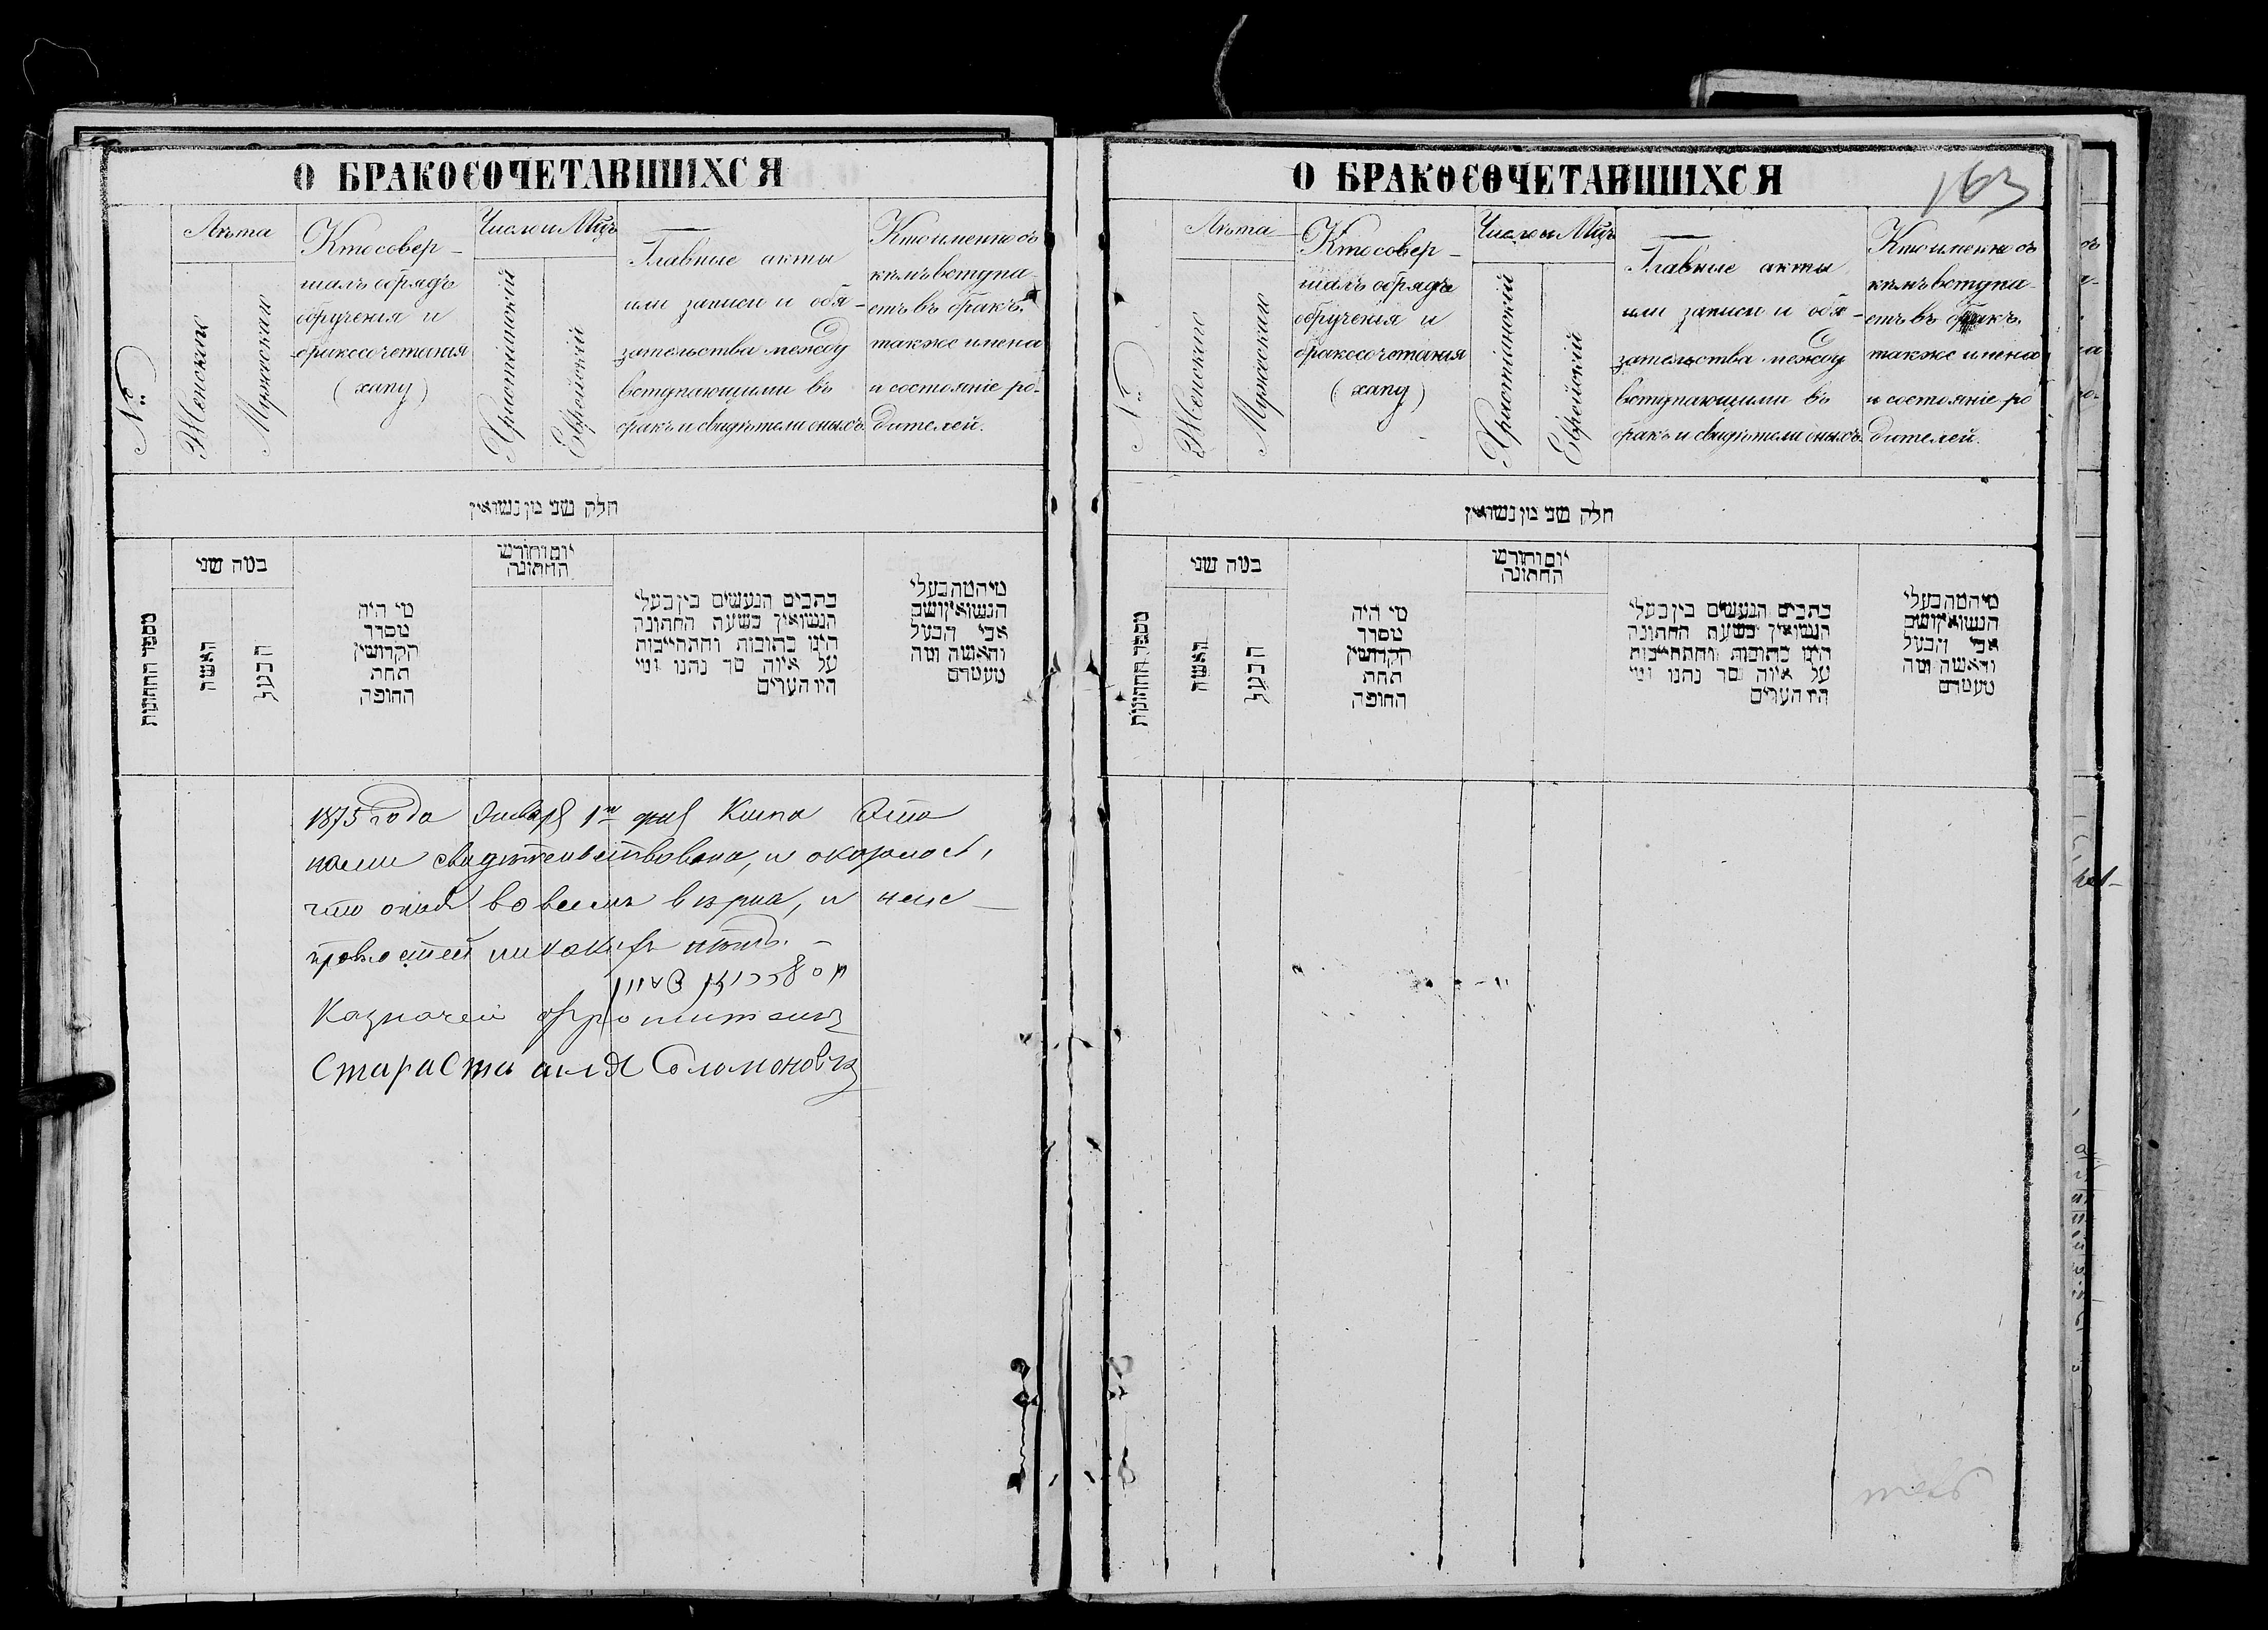 О БРАКОСОЧЕТАВШИХСЯ
№
Лѣта
Женскаго
Мужескаго
Кто совер-
шалъ обрядъ
обрученія и
бракосочетанія
(хапу)
Число и Мѣць
Христіанскій
Еврейскій
Главные акты
или записи и обя-
зательства между
вступающими въ
бракъ и свидѣтели оныхъ
Кто именно съ
кѣмъ вступа-
етъ въ бракъ,
также имена
и состояніе ро-
дителей.
חלק שני מן נשואין
מספר החתונות
כמה שני
האשה
הבעל
מי היה
מסדר
הקדושין
תחת
החופה
יום וחודש
החתונה
כתבים הנעשים בין בעלי
הנשואין בשעת החתונה
היינו כתובות והתחייבות
על איזה סך נתנו ומי
היו העדים
מי המה בעלי
הנשואין ושם
אבי הבעל
והאשה ומה
מעמדם
1875 года Января 1го дня Книга Эта
нами свидѣтельствована, и оказалось,
что оная во всемъ вѣрна, и неис-
правностей никакихъ нѣтъ. -
Казначей
Стараста Соломоновъ
О БРАКОСОЧЕТАВШИХСЯ
163
№
Лѣта
Женскаго
Мужескаго
Кто совер-
шалъ обрядъ
обрученія и
бракосочетанія
(хапу)
Число и Мѣць
Христіанскій
Еврейскій
Главные акты
или записи и обя-
зательства между
вступающими въ
бракъ и свидѣтели оныхъ
Кто именно съ
кѣмъ вступа-
етъ въ бракъ,
также имена
и состояніе ро
дителей.
חלק שני מן נשואין
מספר החתונות
כמה שני
האשה
הבעל
מי היה
מסדר
הקדושין
תחת
החופה
יום וחודש
החתונה
כתבים הנעשים בין בעלי
הנשואין בשעת החתונה
היינו כתובות והתחייבות
על איזה סך נתנו ומי
היו העדים
מי המה בעלי
הנשואין ושם
אבי הבעל
והאשה ומה
מעמדם